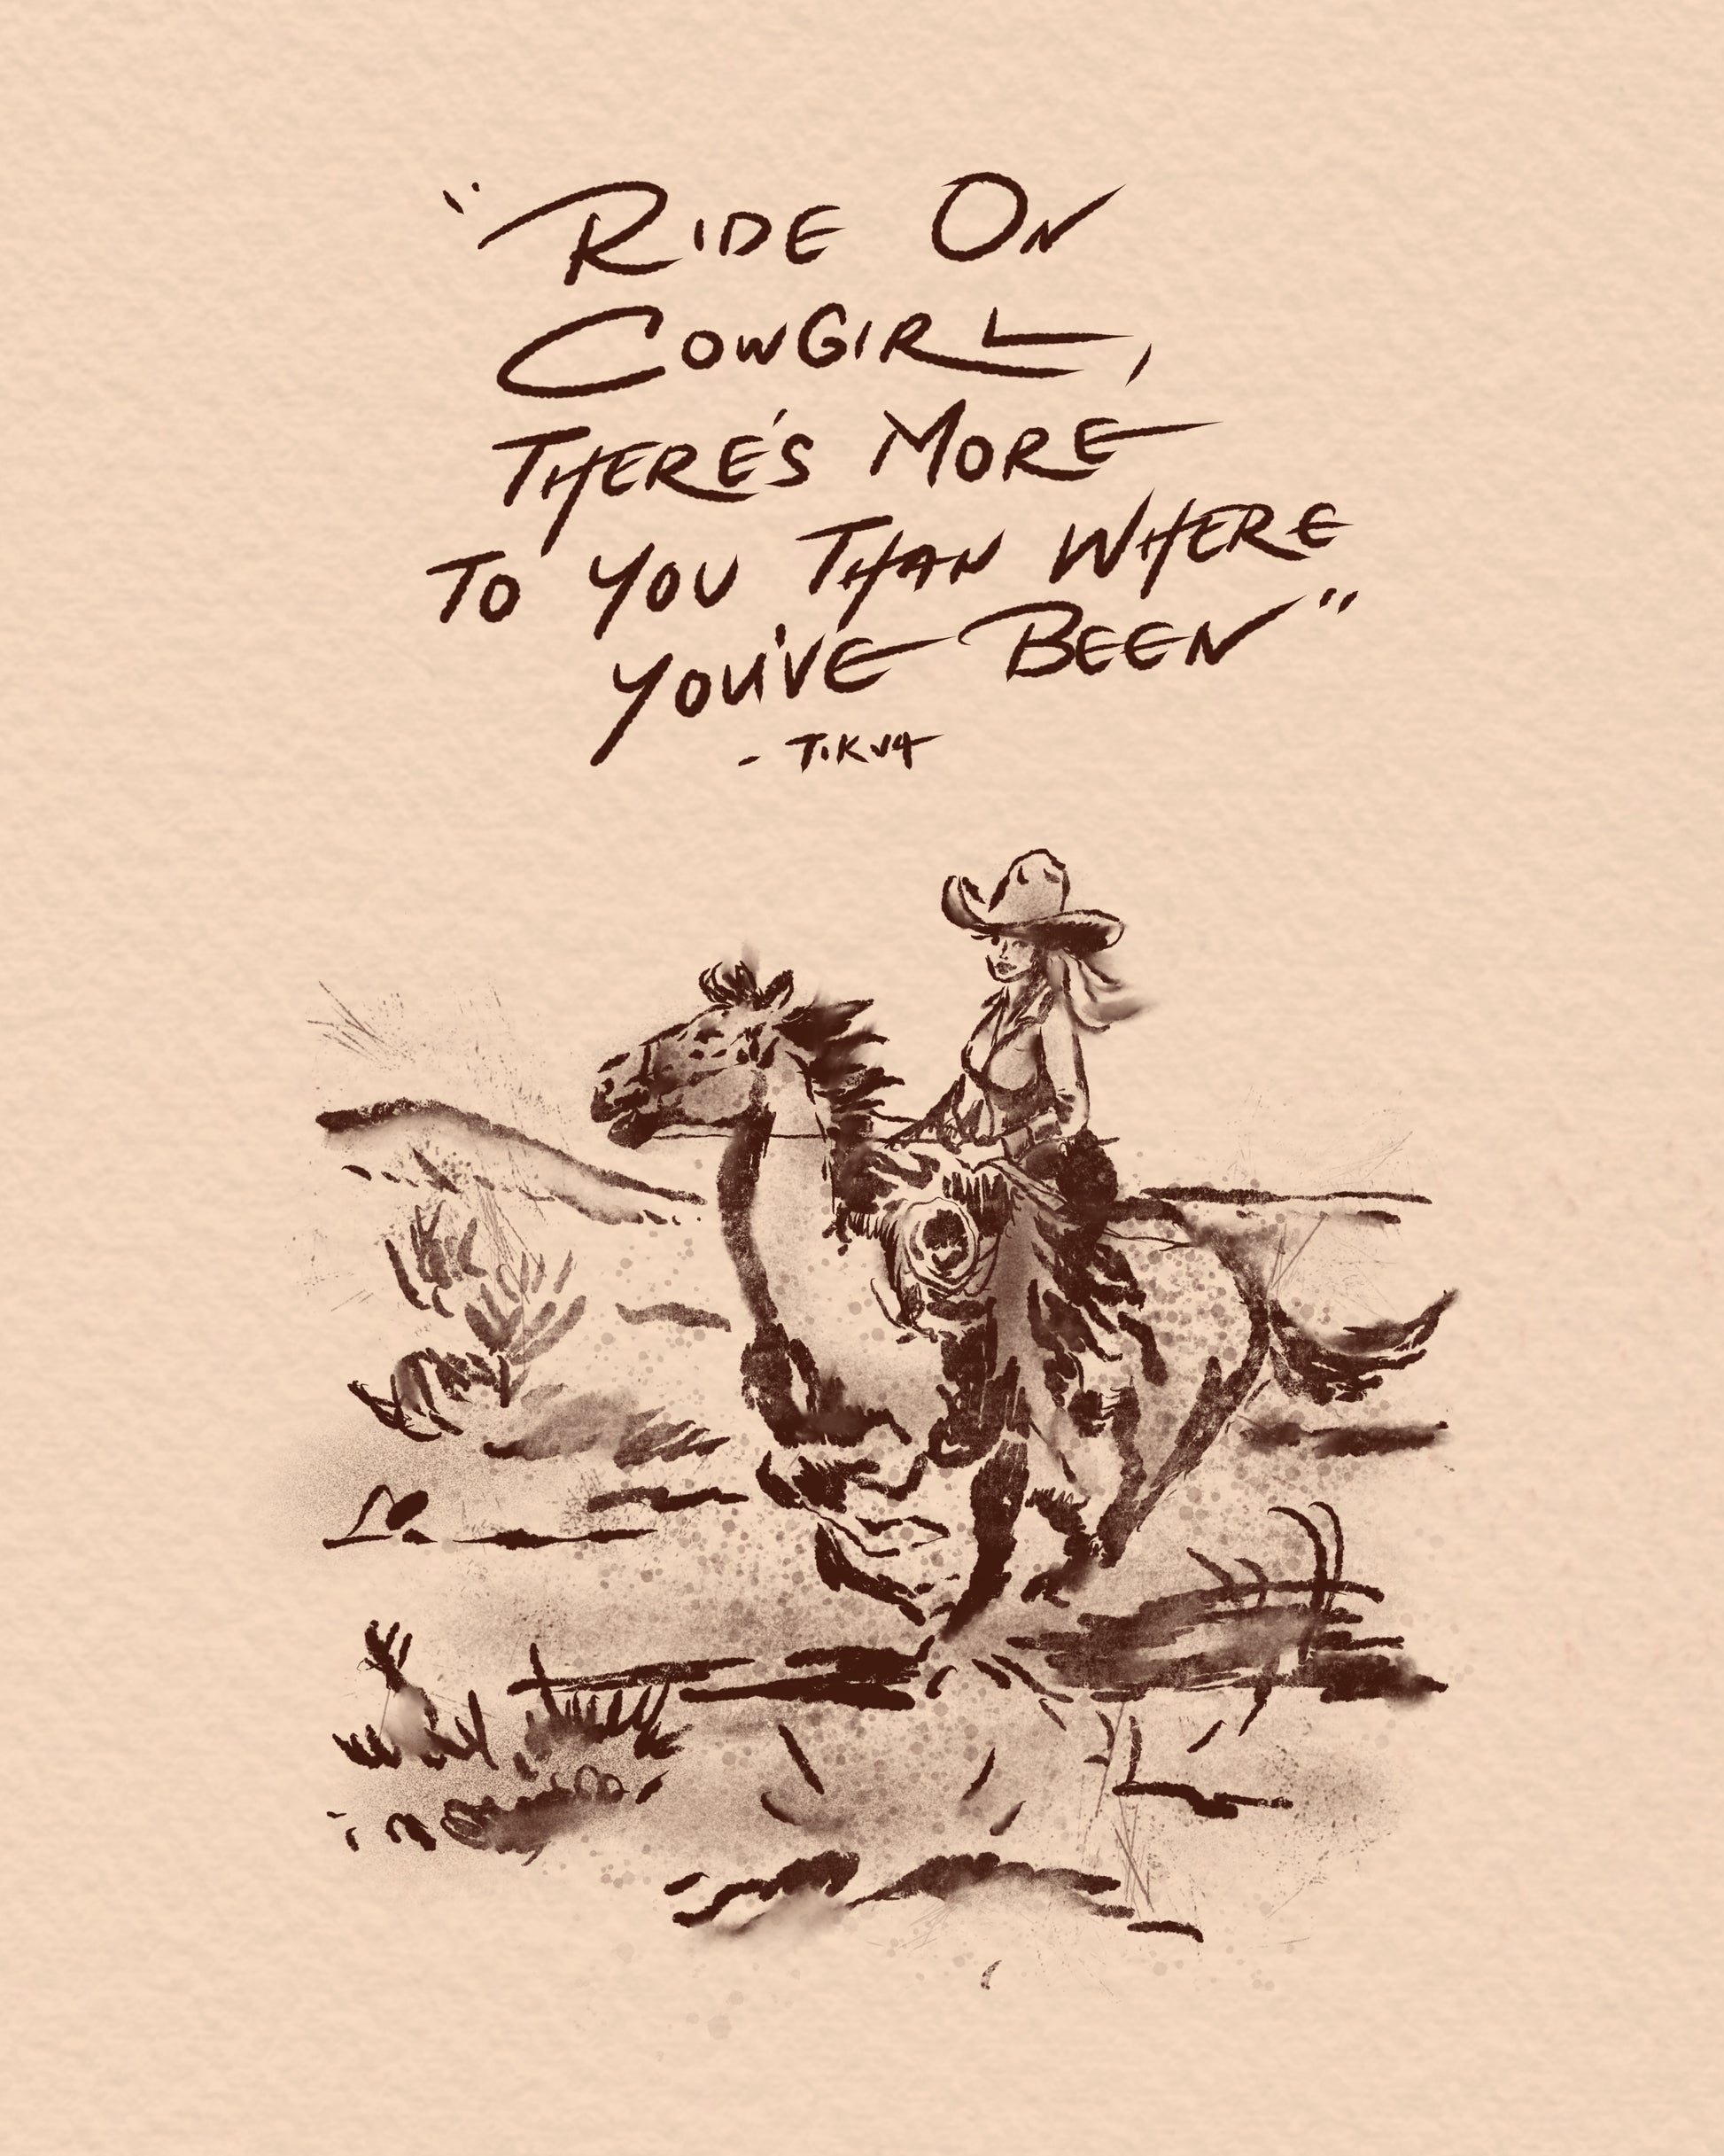 "RIDE ON
COWGIRL,
THERE'S MORE
TO YOU THAN WHERE
YOU'VE BEEN"
- TIKVA